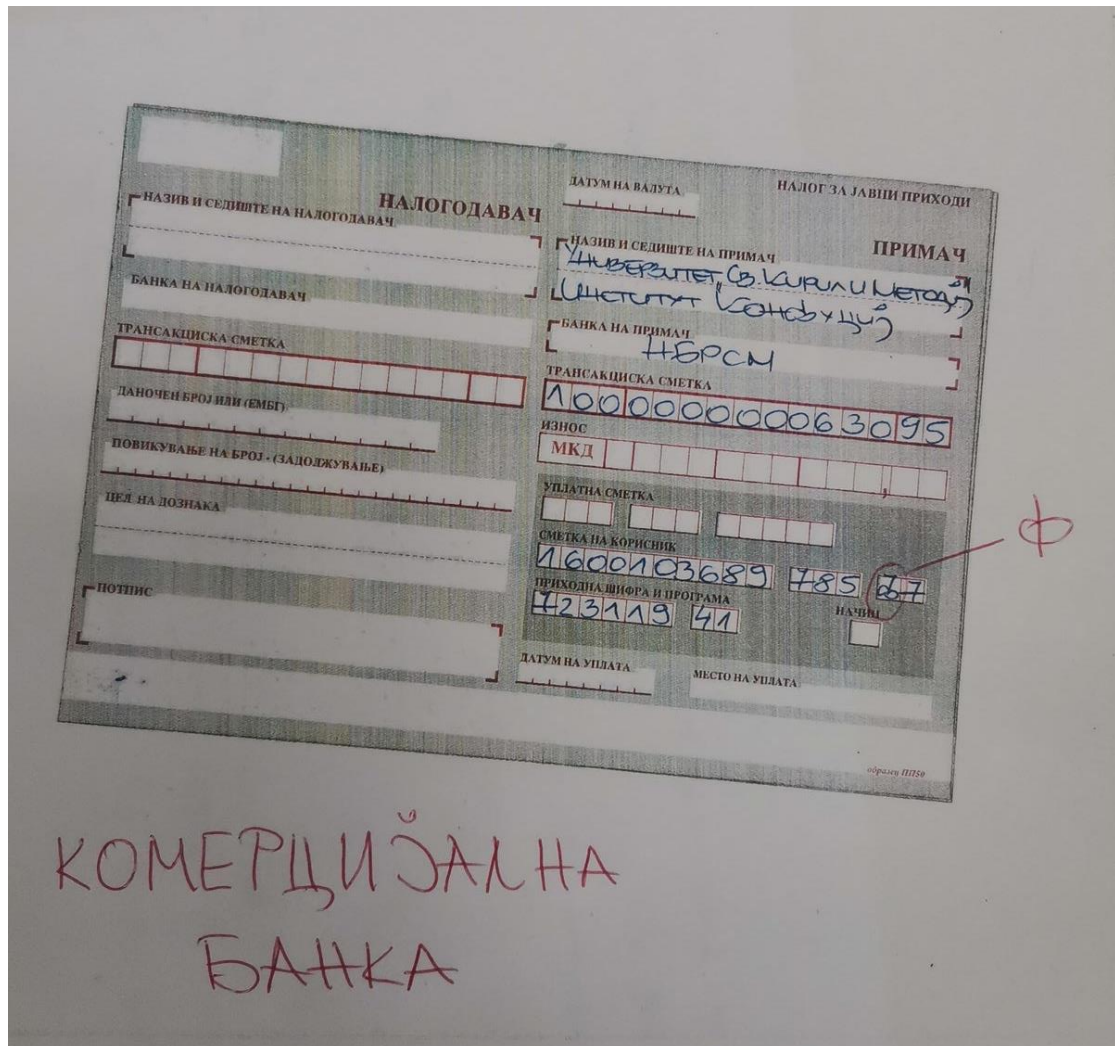 НАЛОГ ЗА ЈАВНИ ПРИХОДИ
НАЛОГОДАВАЧ
НАЗИВ И СЕДИШТЕ НА НАЛОГОДАВАЧ
БАНКА НА НАЛОГОДАВАЧ
ТРАНСАКЦИСКА СМЕТКА
ДАНОЧЕН БРОЈ ИЛИ (ЕМБГ)
ПОВИКУВАЊЕ НА БРОЈ - (ЗАДОЛЖУВАЊЕ)
ЦЕЛ НА ДОЗНАКА
ПОТПИС
ДАТУМ НА ВАЛУТА
ПРИМАЧ
НАЗИВ И СЕДИШТЕ НА ПРИМАЧ
Универзитет, Св. Кирил и Методиј
Институт
БАНКА НА ПРИМАЧ
НБРСМ
ТРАНСАКЦИСКА СМЕТКА
100000000063095
ИЗНОС
МКД ,
УПЛАТНА СМЕТКА
СМЕТКА НА КОРИСНИК
1600103689 785
Ф
ПРИХОДНА ШИФРА И ПРОГРАМА
723119 41
НАЧИН
ДАТУМ НА УПЛАТА
МЕСТО НА УПЛАТА
образец ПП50
КОМЕРЦИЈАЛНА
БАНКА